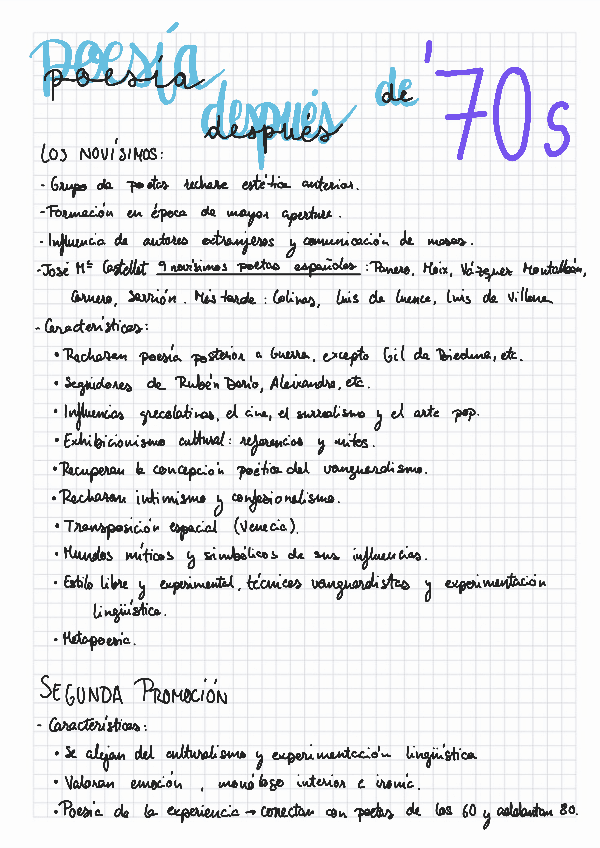 poesía
después de '70s
LOS NOVÍSIMOS:
- Grupo de poetas rechaza estética anterior.
- Formación en época de mayor apertura.
- Influencia de autores extranjeros y comunicación de masas.
- José Mª Castellet 9 novísimos poetas españoles: Panero, Moix, Vázquez Montalbán,
Carnero, Sarrión. Más tarde: Colinas, Luis de Cuenca, Luis de Villena
- Características:
• Rechazan poesía posterior a Guerra, excepto Gil de Biedma, etc.
• Seguidores de Rubén Darío, Aleixandre, etc.
• Influencias grecolatinas, el cine, el surrealismo y el arte pop.
• Exhibicionismo cultural: referencias y mitos.
• Recuperan la concepción poética del vanguardismo.
• Rechazan intimismo y confesionalismo.
• Transposición espacial (Venecia).
• Mundos míticos y simbólicos de sus influencias.
• Estilo libre y experimental, técnicas vanguardistas y experimentación
lingüística.
• Metapoesía.
SEGUNDA PROMOCIÓN
- Características:
• Se alejan del culturalismo y experimentación lingüística
• Valoran emoción, monólogo interior e ironía.
• Poesía de la experiencia → conectan con poetas de los 60 y adelantan 80.